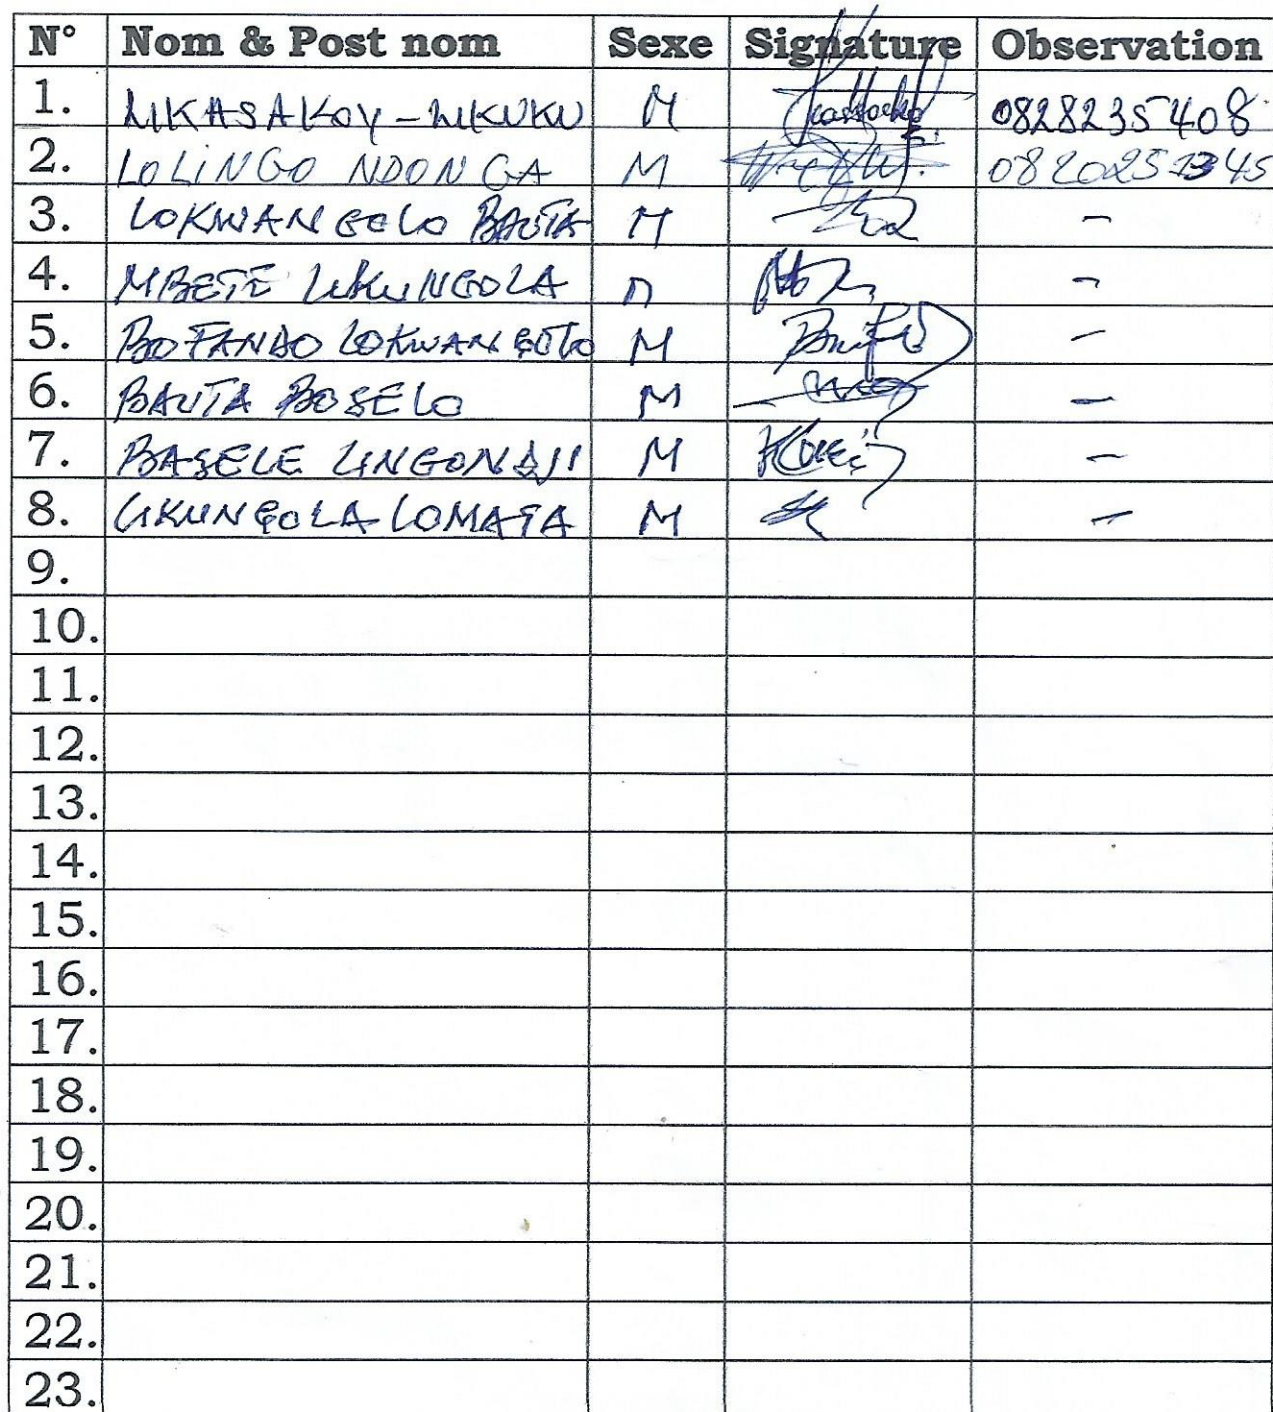 N° Nom & Post nom Sexe Signature Observation
1. LIKASAKOY-LIKUKU M 0828235408
2. LOLINGO NDONGA M
3. LOKWANGOLO BAUTA M -
4. MBETE LIKUNGOLA M -
5. BOFANDO LOKWANGOLO M -
6. BAUTA BOSELO M -
7. BASELE M -
8. LIKUNGOLA LOMATA M -
9.
10.
11.
12.
13.
14.
15.
16.
17.
18.
19.
20.
21.
22.
23.